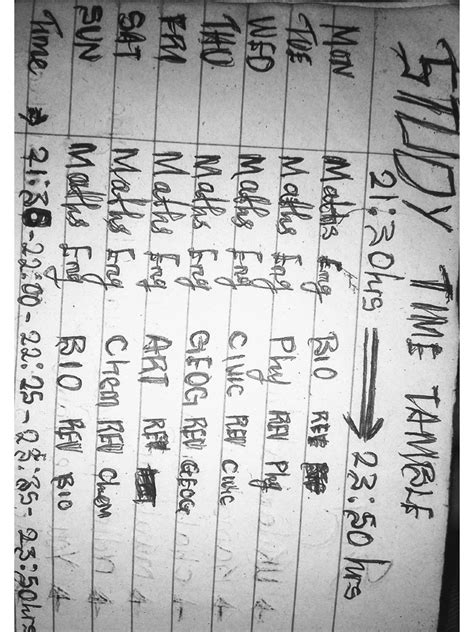 STUDY TIME TAMBLE
21:30hrs → 23:50hrs
MON Maths Eng BIO REV
TUE Maths Eng Phy REV Phy
WED Maths Eng CIVIC REV CIVIC
THU Maths Eng GEOG REV GEOG
FRI Maths Eng ART REV
SAT Maths Eng Chem REV Chem
SUN Maths Eng BIO REV BIO
Time → 21:30-22:00-22:25-23:25-23:50hrs